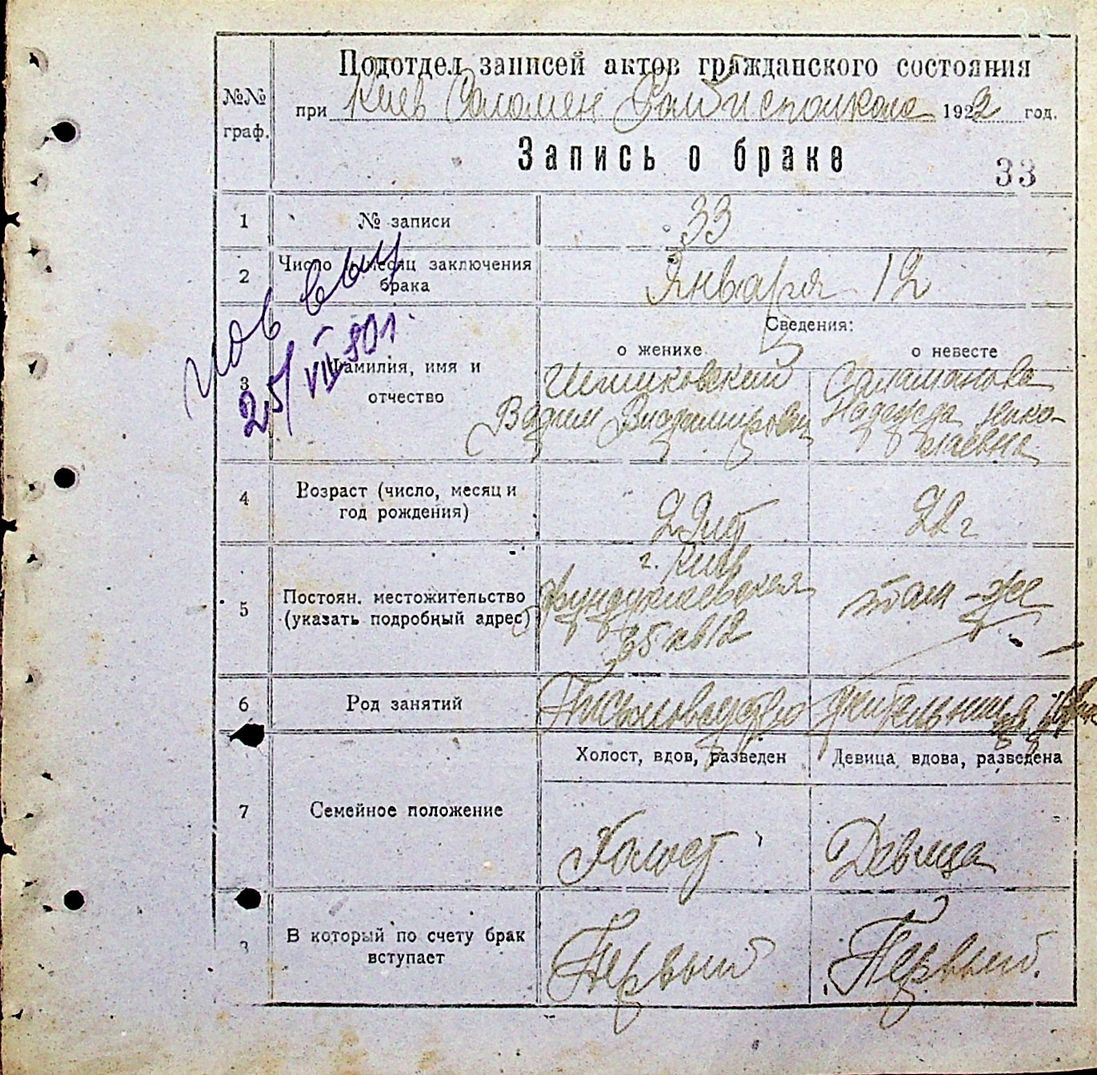 Подотдел записей актов гражданского состояния
№№ граф.
при Киев Соломен Рай Исполкоме 1922 год.
Запись о браке
33
1 № записи 33
2 Число и месяц заключения брака Января 12
пов выд
25/VII 80 г.
Сведения:
о женихе о невесте
3 Фамилия, имя и отчество
Вадим Владимирович
Саламанова
Надежда Нико-
лаевна
4 Возраст (число, месяц и год рождения) 22 г
5 Постоян. местожительство (указать подробный адрес)
г. Киев
Фундуклеевская
35 кв 12
там-же
6 Род занятий Письмоводство
Холост, вдов, разведен Девица, вдова, разведена
7 Семейное положение Холост Девица
В который по счету брак вступает Первый Первый.